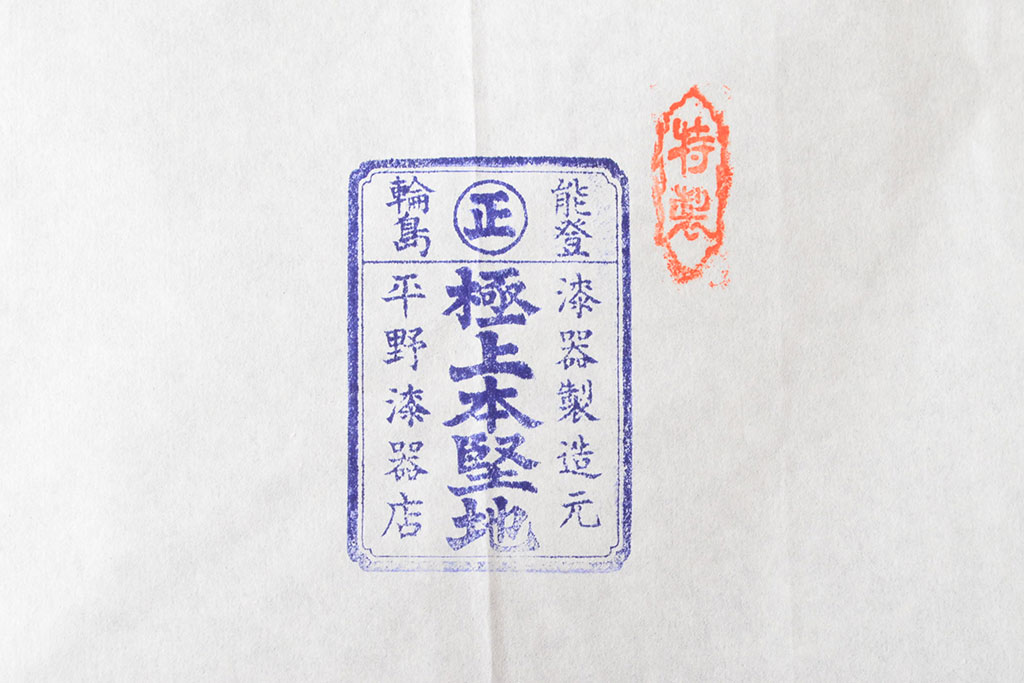 特製
能登
正
輪島
漆器製造元
極上本堅地
平野漆器店